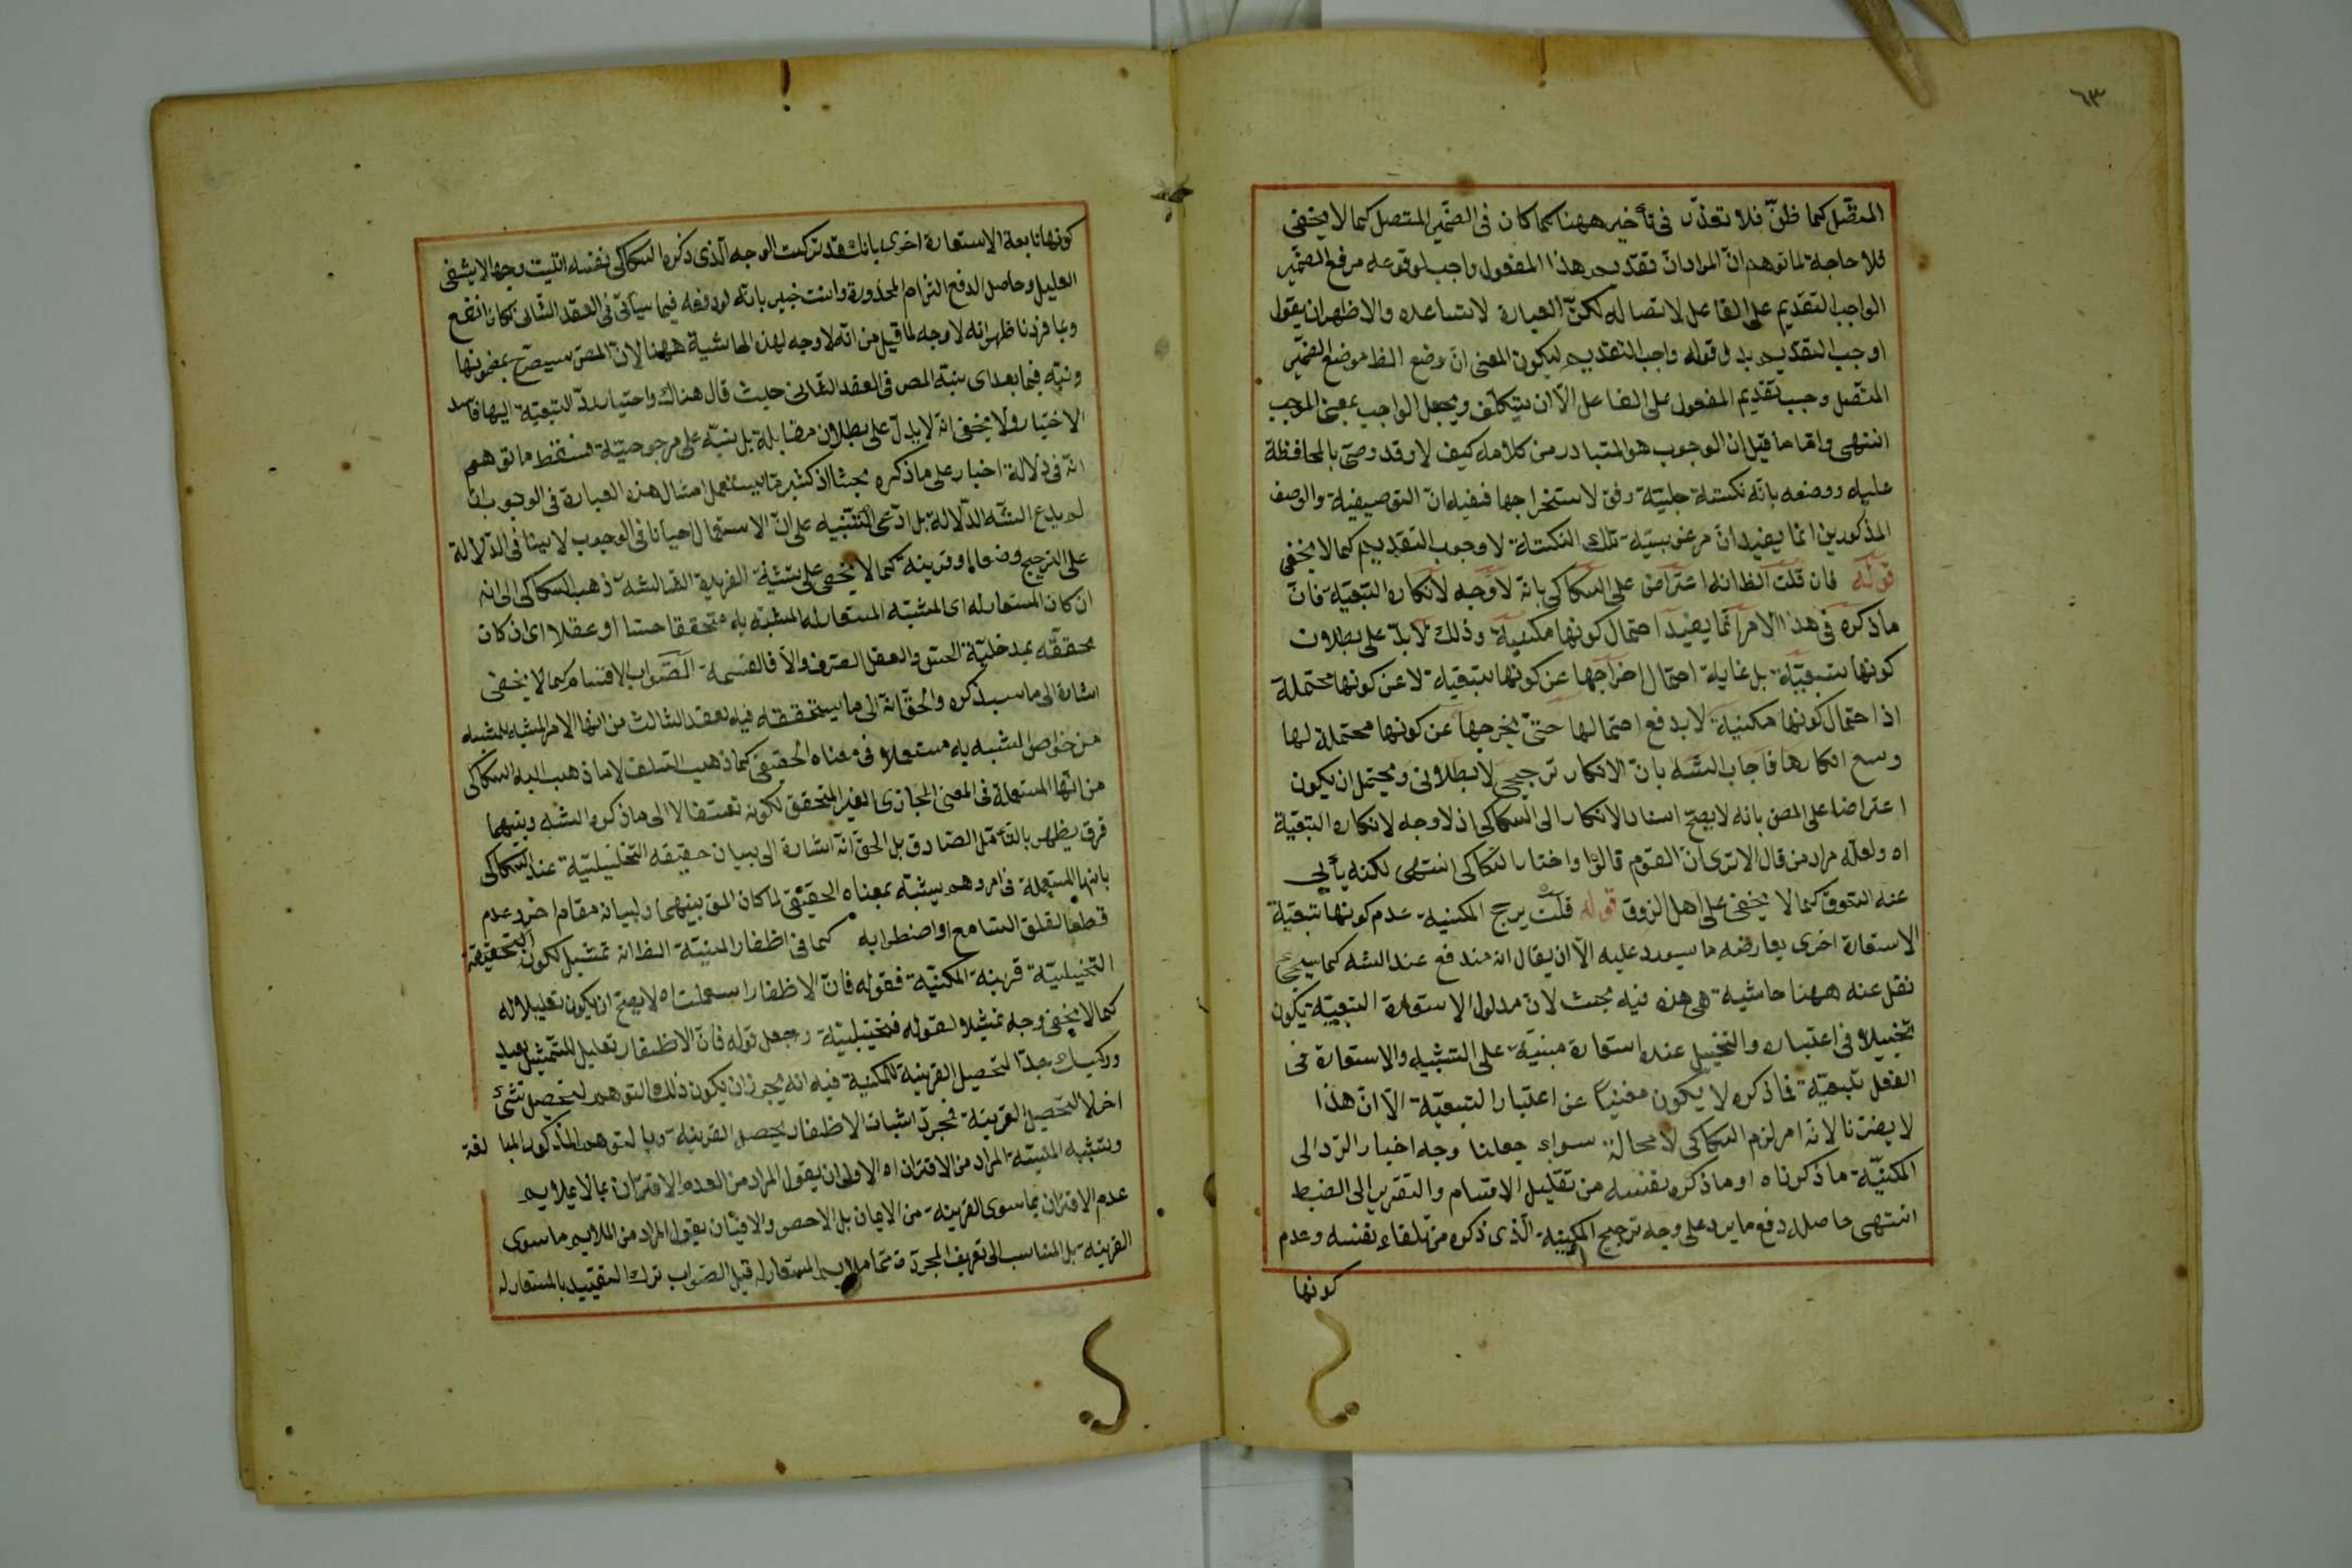 ٦٣
المتصل كما ظن فلا تعذر فى تأخيره ههنا كما كان فى الضمير المتصل كما لا يخفى
فلا حاجة لما توهم ان المراد ان تقديم هذا المفعول واجب لوقوعه موقع الضمير
الواجب التقديم على الفاعل لاتصاله لكن العبارة لا تساعده والاظهر ان يقول
اوجب التقديم بدل قوله واجب التقديم ليكون المعنى ان وضع الظ موضع الضمير
المتصل وجب تقديم المفعول على الفاعل الا ان يتكلف ويجعل الواجب بمعنى الموجب
انتهى واما ما قيل ان الوجوب هو المتبادر من كلامه كيف لا وقد وصى بالمحافظة
عليه ووصفه بانه نكتة جليلة وفق لاستخراجها ففيه ان التوصيفية والوصف
المذكورين انما يفيد ان مرغوبية تلك النكتة لا وجوب التقديم كما لا يخفى
قوله فان قلت الظ انه اعتراض على السكاكى بانه لا وجه لانكاره التبعية فان
ما ذكره فى هذا الامر انما يفيد احتمال كونها مكنية وذلك لا يدل على بطلان
كونها تبعية بل غاية احتمال اخراجها عن كونها تبعية لا عن كونها محتملة
اذ احتمال كونها مكنية لا يدفع احتمالها حتى يخرجها عن كونها محتملة لها
وسع انكارها فاجاب الشه بان الانكار ترجيحى لا بطلانى ويحتمل ان يكون
اعتراضا على المص بانه لا يصح اسناد الانكار الى السكاكى اذ لا وجه لانكاره التبعية
اه ولعله مراد من قال الا ترى ان القوم قالوا واختار السكاكى انتهى لكنه يأبى
عنه التفوق كما لا يخفى على اهل الذوق قوله قلت يرجح المكنية عدم كونها تبعية
الاستعارة اخرى يعارضه ما سيورد عليه الا ان يقال انه مندفع عند الشه كما سيجئ
نقل عنه ههنا حاشية هى هذه فيه بحث لان مدلول الاستعارة التبعية يكون
تخييلا فى اعتباره والتخييل عنده استعارة مبنية على التشبيه والاستعارة فى
الفعل تبعية فما ذكره لا يكون مغنيا عن اعتبار التبعية الا ان هذا
لا يضرنا لانه امر لزم السكاكى لا محالة سواء جعلنا وجه اختيار الرد الى
المكنية ما ذكرناه او ما ذكره بنفسه من تقليل الاقسام والتقريب الى الضبط
انتهى حاصله دفع ما يرد على وجه ترجيح المكنية الذى ذكره من تلقاء نفسه وعدم
كونها
كونها تابعة الاستعارة اخرى بانك قد تركت الوجه الذى ذكره السكاكى نفسه اتليت وجها لا يشفى
العليل وحاصل الدفع التزام المحذورة وانت خبير بانه لو دفعه فيما سيأتى فى العقد الثانى لكان انفع
وبما قررنا ظهر انه لا وجه لما قيل من انه لا وجه لهذه الحاشية ههنا لان المص سيصرح بمضمونها
ونبه فيما بعد اى ينبه المص فى العقد الثانى حيث قال هناك واختيار رد التبعية اليها فاسد
الاختيار ولا يخفى انه لا يدل على بطلان مقابله بل ينبه على مرجوحيته فسقط ما توهم
انه فى دلالة اختيار على ما ذكره بحثا اذ كثير ما يستعمل امثال هذه العبارة فى الوجوب ان
لم يدع الشه الدلالة بل ادعى التنبيه على ان الاستعمال احيانا فى الوجوب لا ينافى الدلالة
على الترجيح وضعا او قرينة كما لا يخفى على بينة الفريدة الثالثة ذهب السكاكى الى انه
ان كان المستعار له اى المشبه المستعار له المشبه به متحققا حسا او عقلا اى ان كان
محققه بمدخلية الحس والعقل الصرف والا فالقسمة الصواب الاقسام كما لا يخفى
اشارة الى ما سيذكره والحق انه الى ما يستحققه فيه لعقد الثالث من انها الامر المشبه للمشبه
من خواص المشبه به مستعملا فى معناه الحقيقى كما ذهب السلف لا ما ذهب اليه السكاكى
من انها المستعملة فى المعنى المجازى الغير المتحقق لكونه تعسفا لا الى ما ذكره الشه وبينهما
فرق يظهر بالتأمل الصادق بل الحق انه اشارة الى بيان حقيقة التخييلية عند السكاكى
بانها المستعملة فى امر وهم يشبه بمعناه الحقيقى لما كان المق بينهما ولبيانه مقام اخر وعدم
قطعا لقلق السامع او اضطرابه كما فى اظفار المنية الظ انه تمثيل لكون التحقيقة
التخييلية قرينة المكنية فقوله فان الاظفار استعملت اه لا يصح ان يكون تعليلا له
كما لا يخفى وجه تمثيلا لقوله فتخييلية وجعل قوله فان الاظفار تعليل للتمثيل بعيد
وركيك جدا لتحصيل القرينة للمكنية فيه انه يجوز ان يكون ذلك التوهم لتحصيل شئ
اخر لا لتحصيل القرينة بمجرد اثبات الاظفار يحصل القرينة وبالتوهم المذكور المبا لغة
وبتشبيه المنية المراد من الاقتران اه الاولى ان يقول المراد من العدم الاقتران بما لا يلايم
عدم الاقتران بما سوى القرينة من الايمان بل الاحص والاتيان يقول المراد من الملايم ما سوى
القرينة بل المناسب الى تعريف المجردة مما ملايم المستعار له قيل الصواب ترك التقييد بالمستعار له